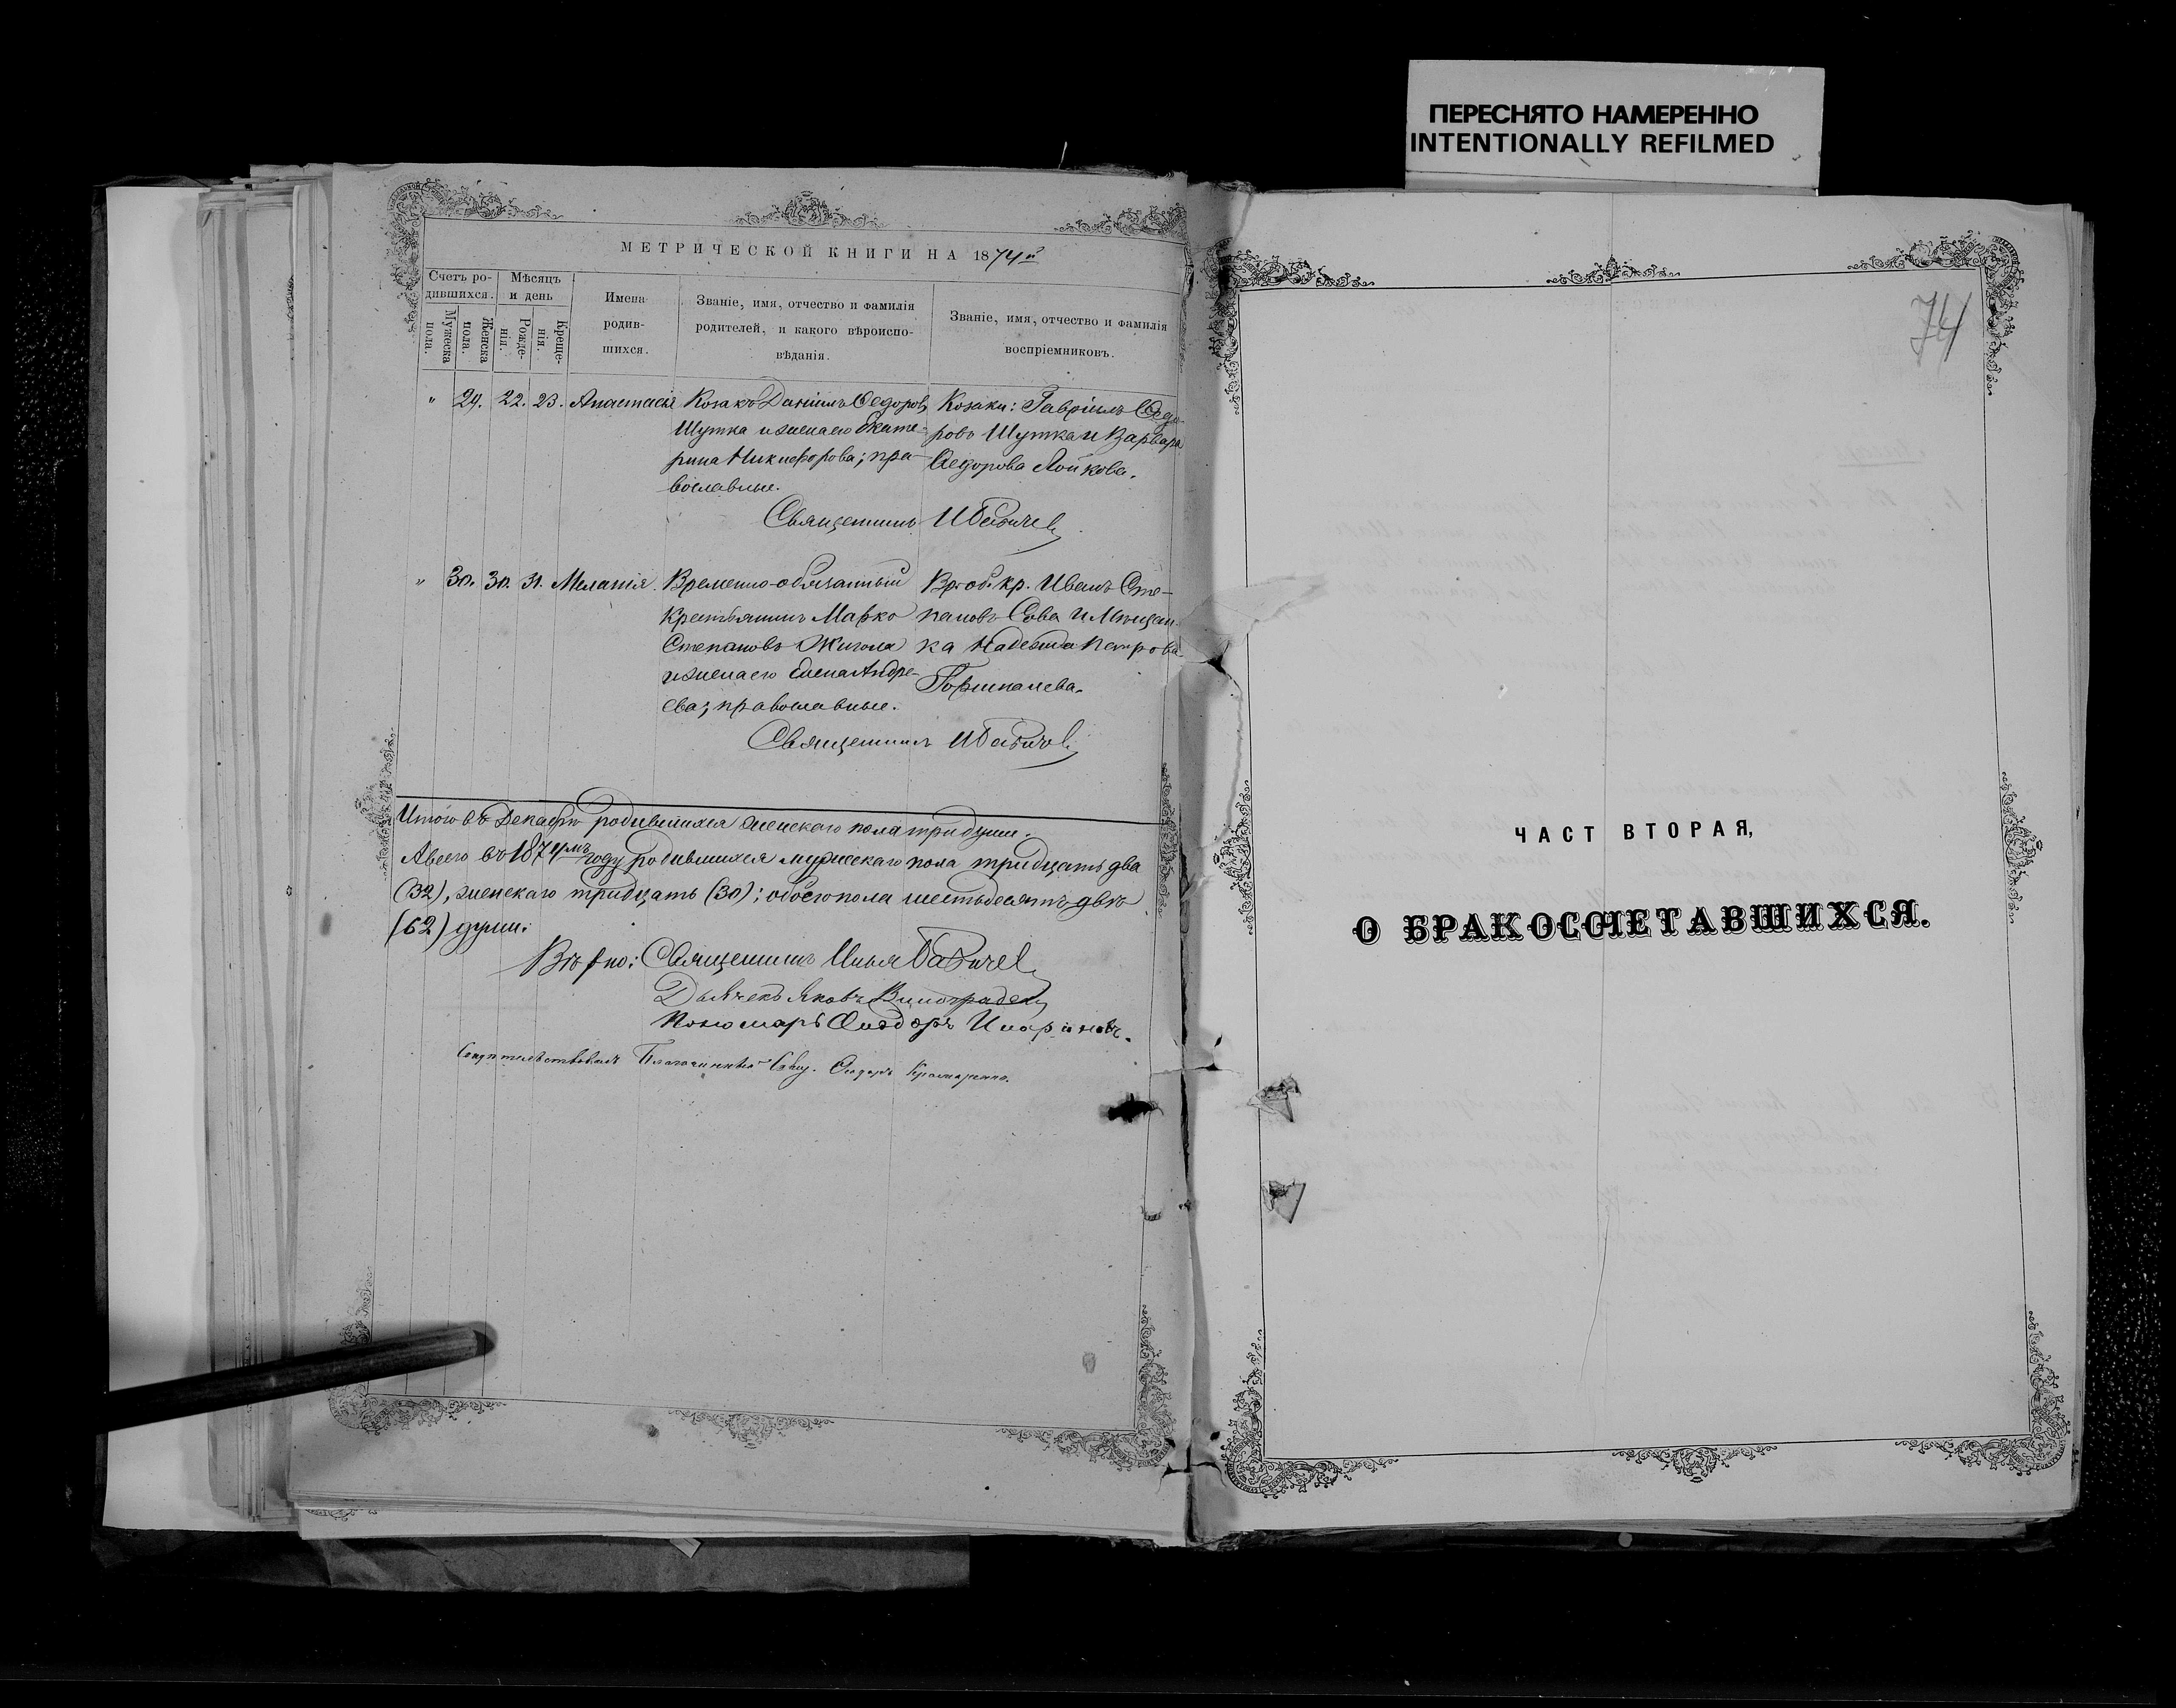 ПЕРЕСНЯТО НАМЕРЕННО
INTENTIONALLY REFILMED
МЕТРИЧЕСКОЙ КНИГИ НА 1874й
Счетъ ро-
дившихся.
Мѣсяцъ
и день
Мужеска
пола.
Женска
пола.
Рожде-
нія.
Креще-
нія.
Имена
родив-
шихся.
Званіе, имя, отчество и фамилія
родителей, и какого вѣроиспо-
вѣданія.
Званіе, имя, отчество и фамилія
воспріемниковъ.
" 29. 22. 23. Анастасія
Козакъ Даніилъ Ѳедоровъ
Шутка и жена его Екате-
рина Никифорова; пра-
вославные.
Козаки: Гавріилъ Ѳедо-
ровъ Шутка и Варвара
Ѳедорова Лойкова.
Священникъ И Бабичев
" 30. 30. 31. Меланія.
Временно-обязанный
Крестьянинъ Марко
Степановъ Жигола
и жена его Елена Андре-
ева; православные.
Вр. об. кр. Иванъ Сте-
пановъ Сова и Мѣщан-
ка Надежда Петрова
Священникъ И Бабичев
Итого въ Декабрѣ родившихся женскаго пола три души.
А всего въ 1874мъ году родившихся мужескаго пола тридцать два
(32), женскаго тридцать (30); обоего пола шестьдесятъ двѣ
(62) души.
Вѣрно: Священникъ Илья Бабичев
Дьячекъ Яковъ Виноградов
Пономарь Ѳеодоръ
Свидѣтельствовалъ Благочинный Свящ. Ѳеодоръ
74
ЧАСТ ВТОРАЯ,
О БРАКОСОЧЕТАВШИХСЯ.